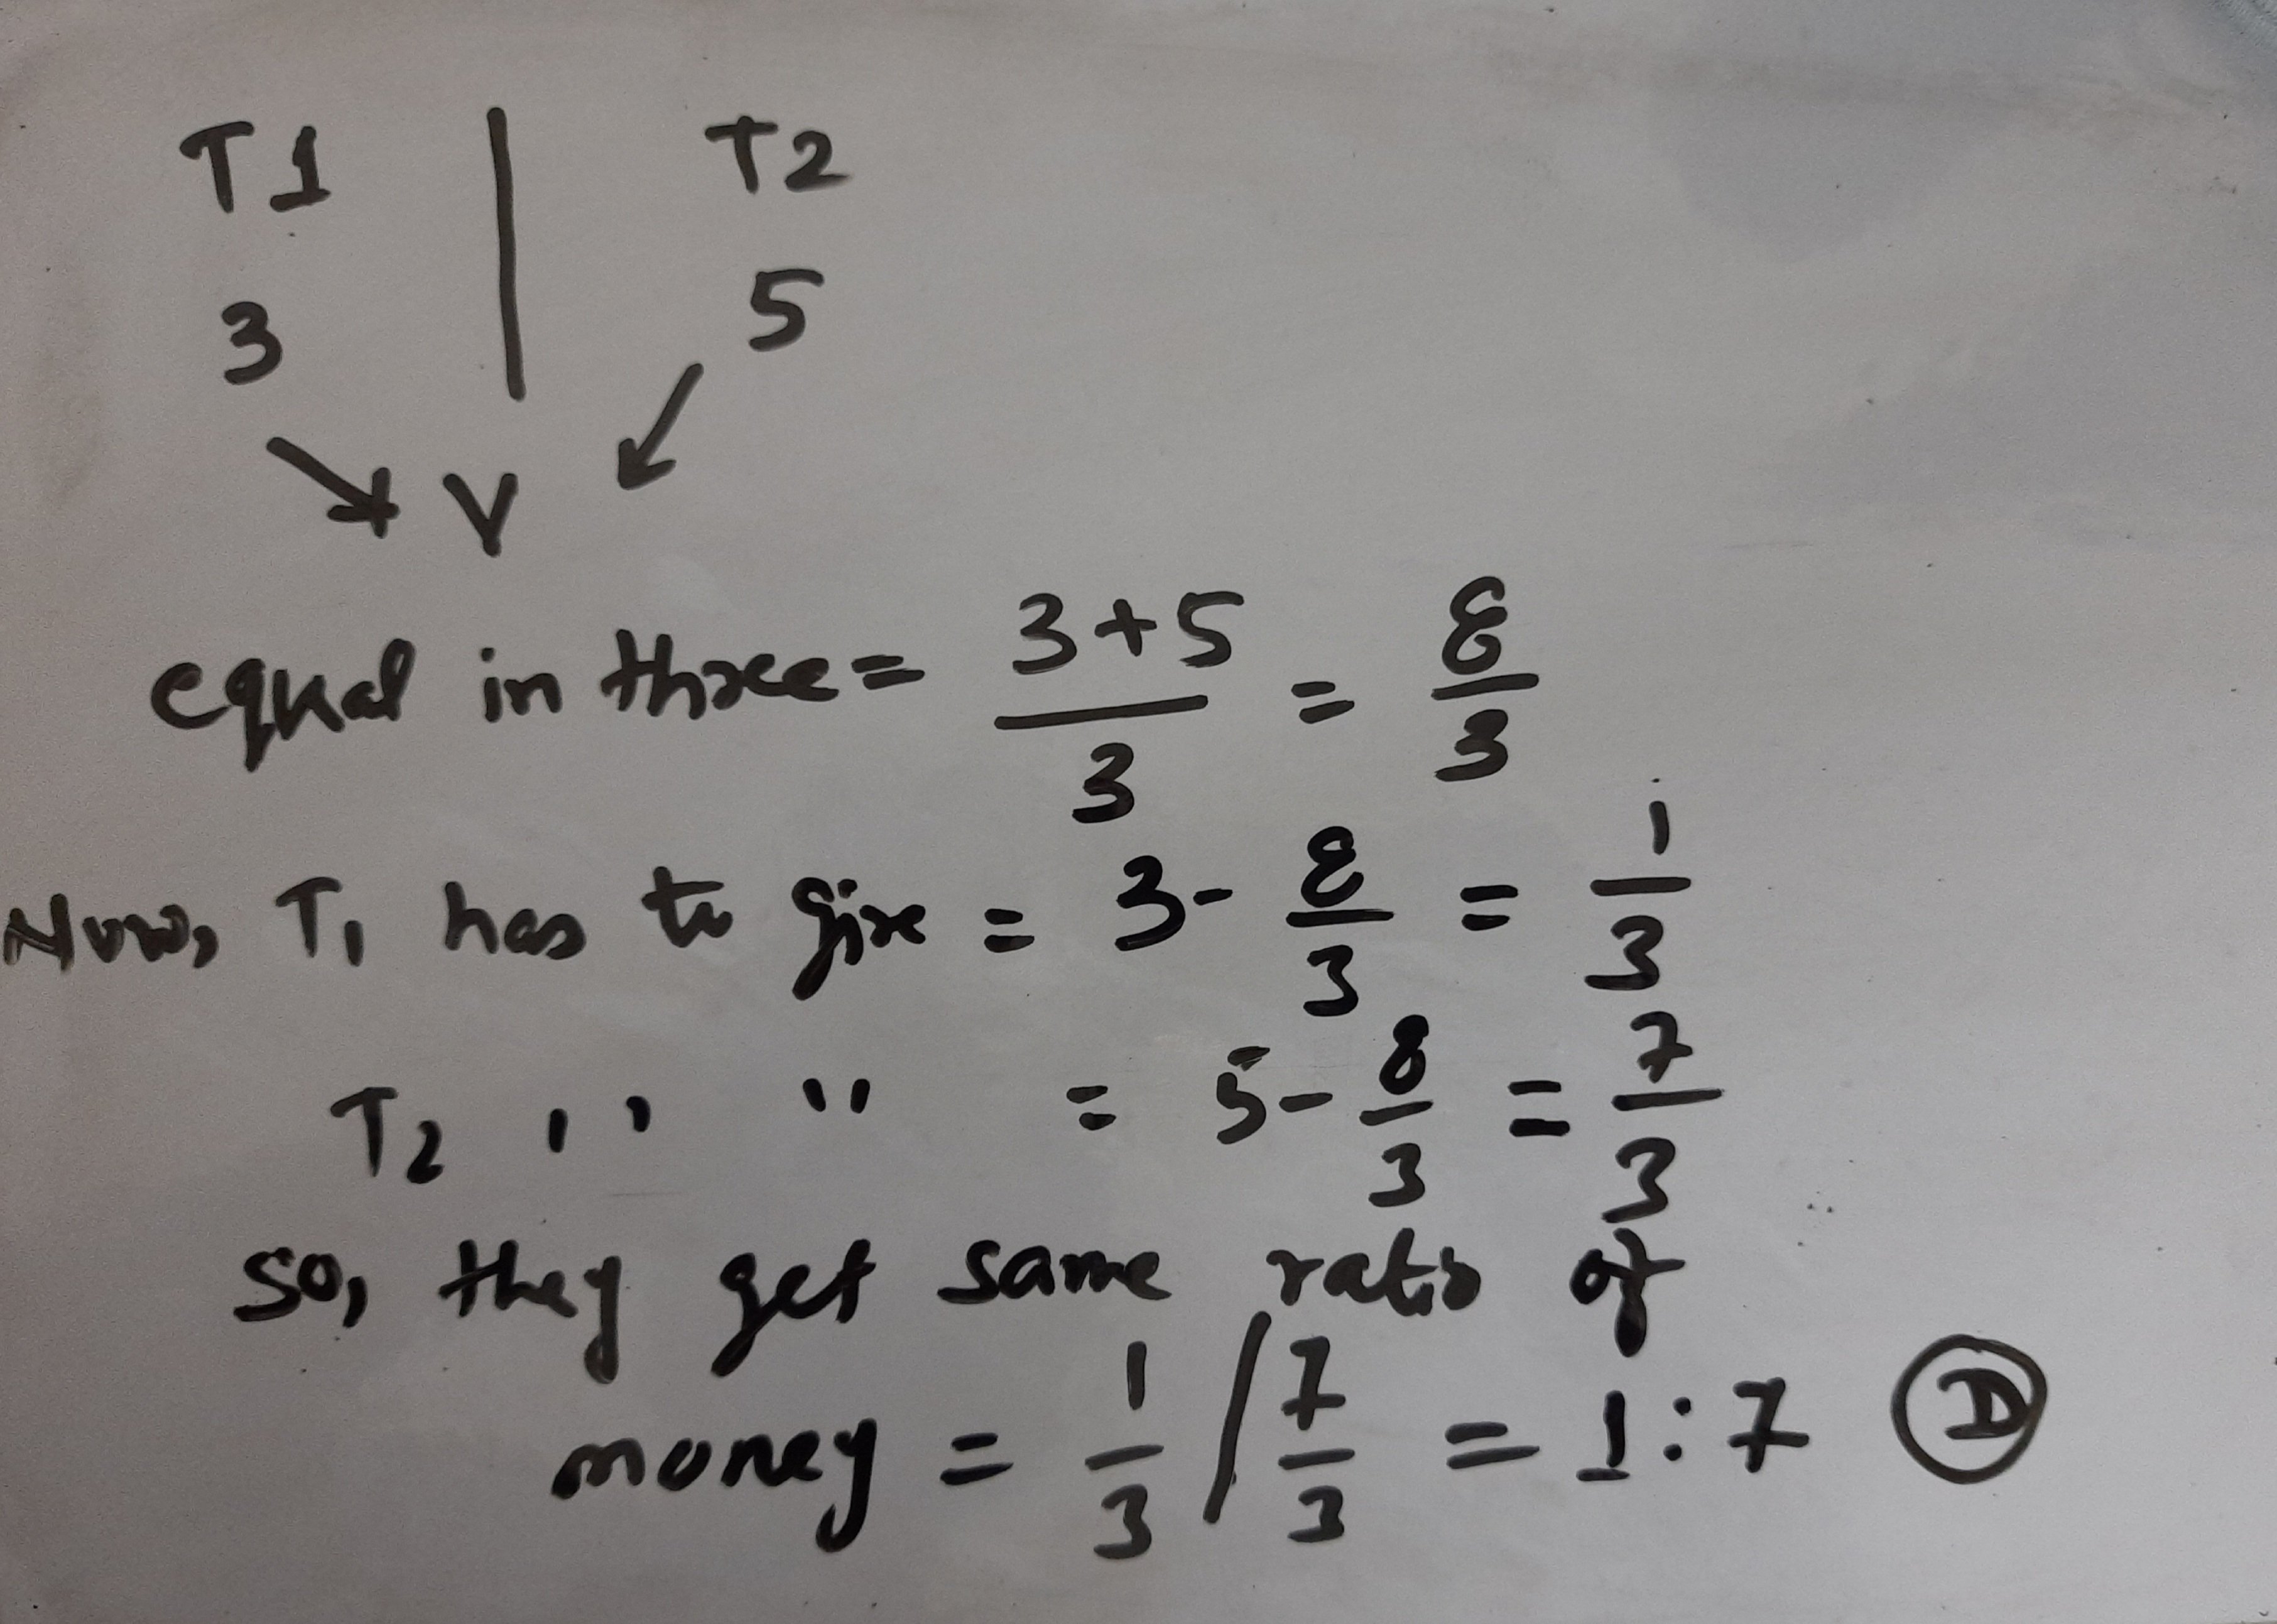 T1 | T2
3 5
↘ V ↙
equal in three = 3+5/3 = 8/3
Now, T1 has to give = 3 - 8/3 = 1/3
T2 " " = 5 - 8/3 = 7/3
so, they get same ratio of
money = 1/3 / 7/3 = 1:7 D